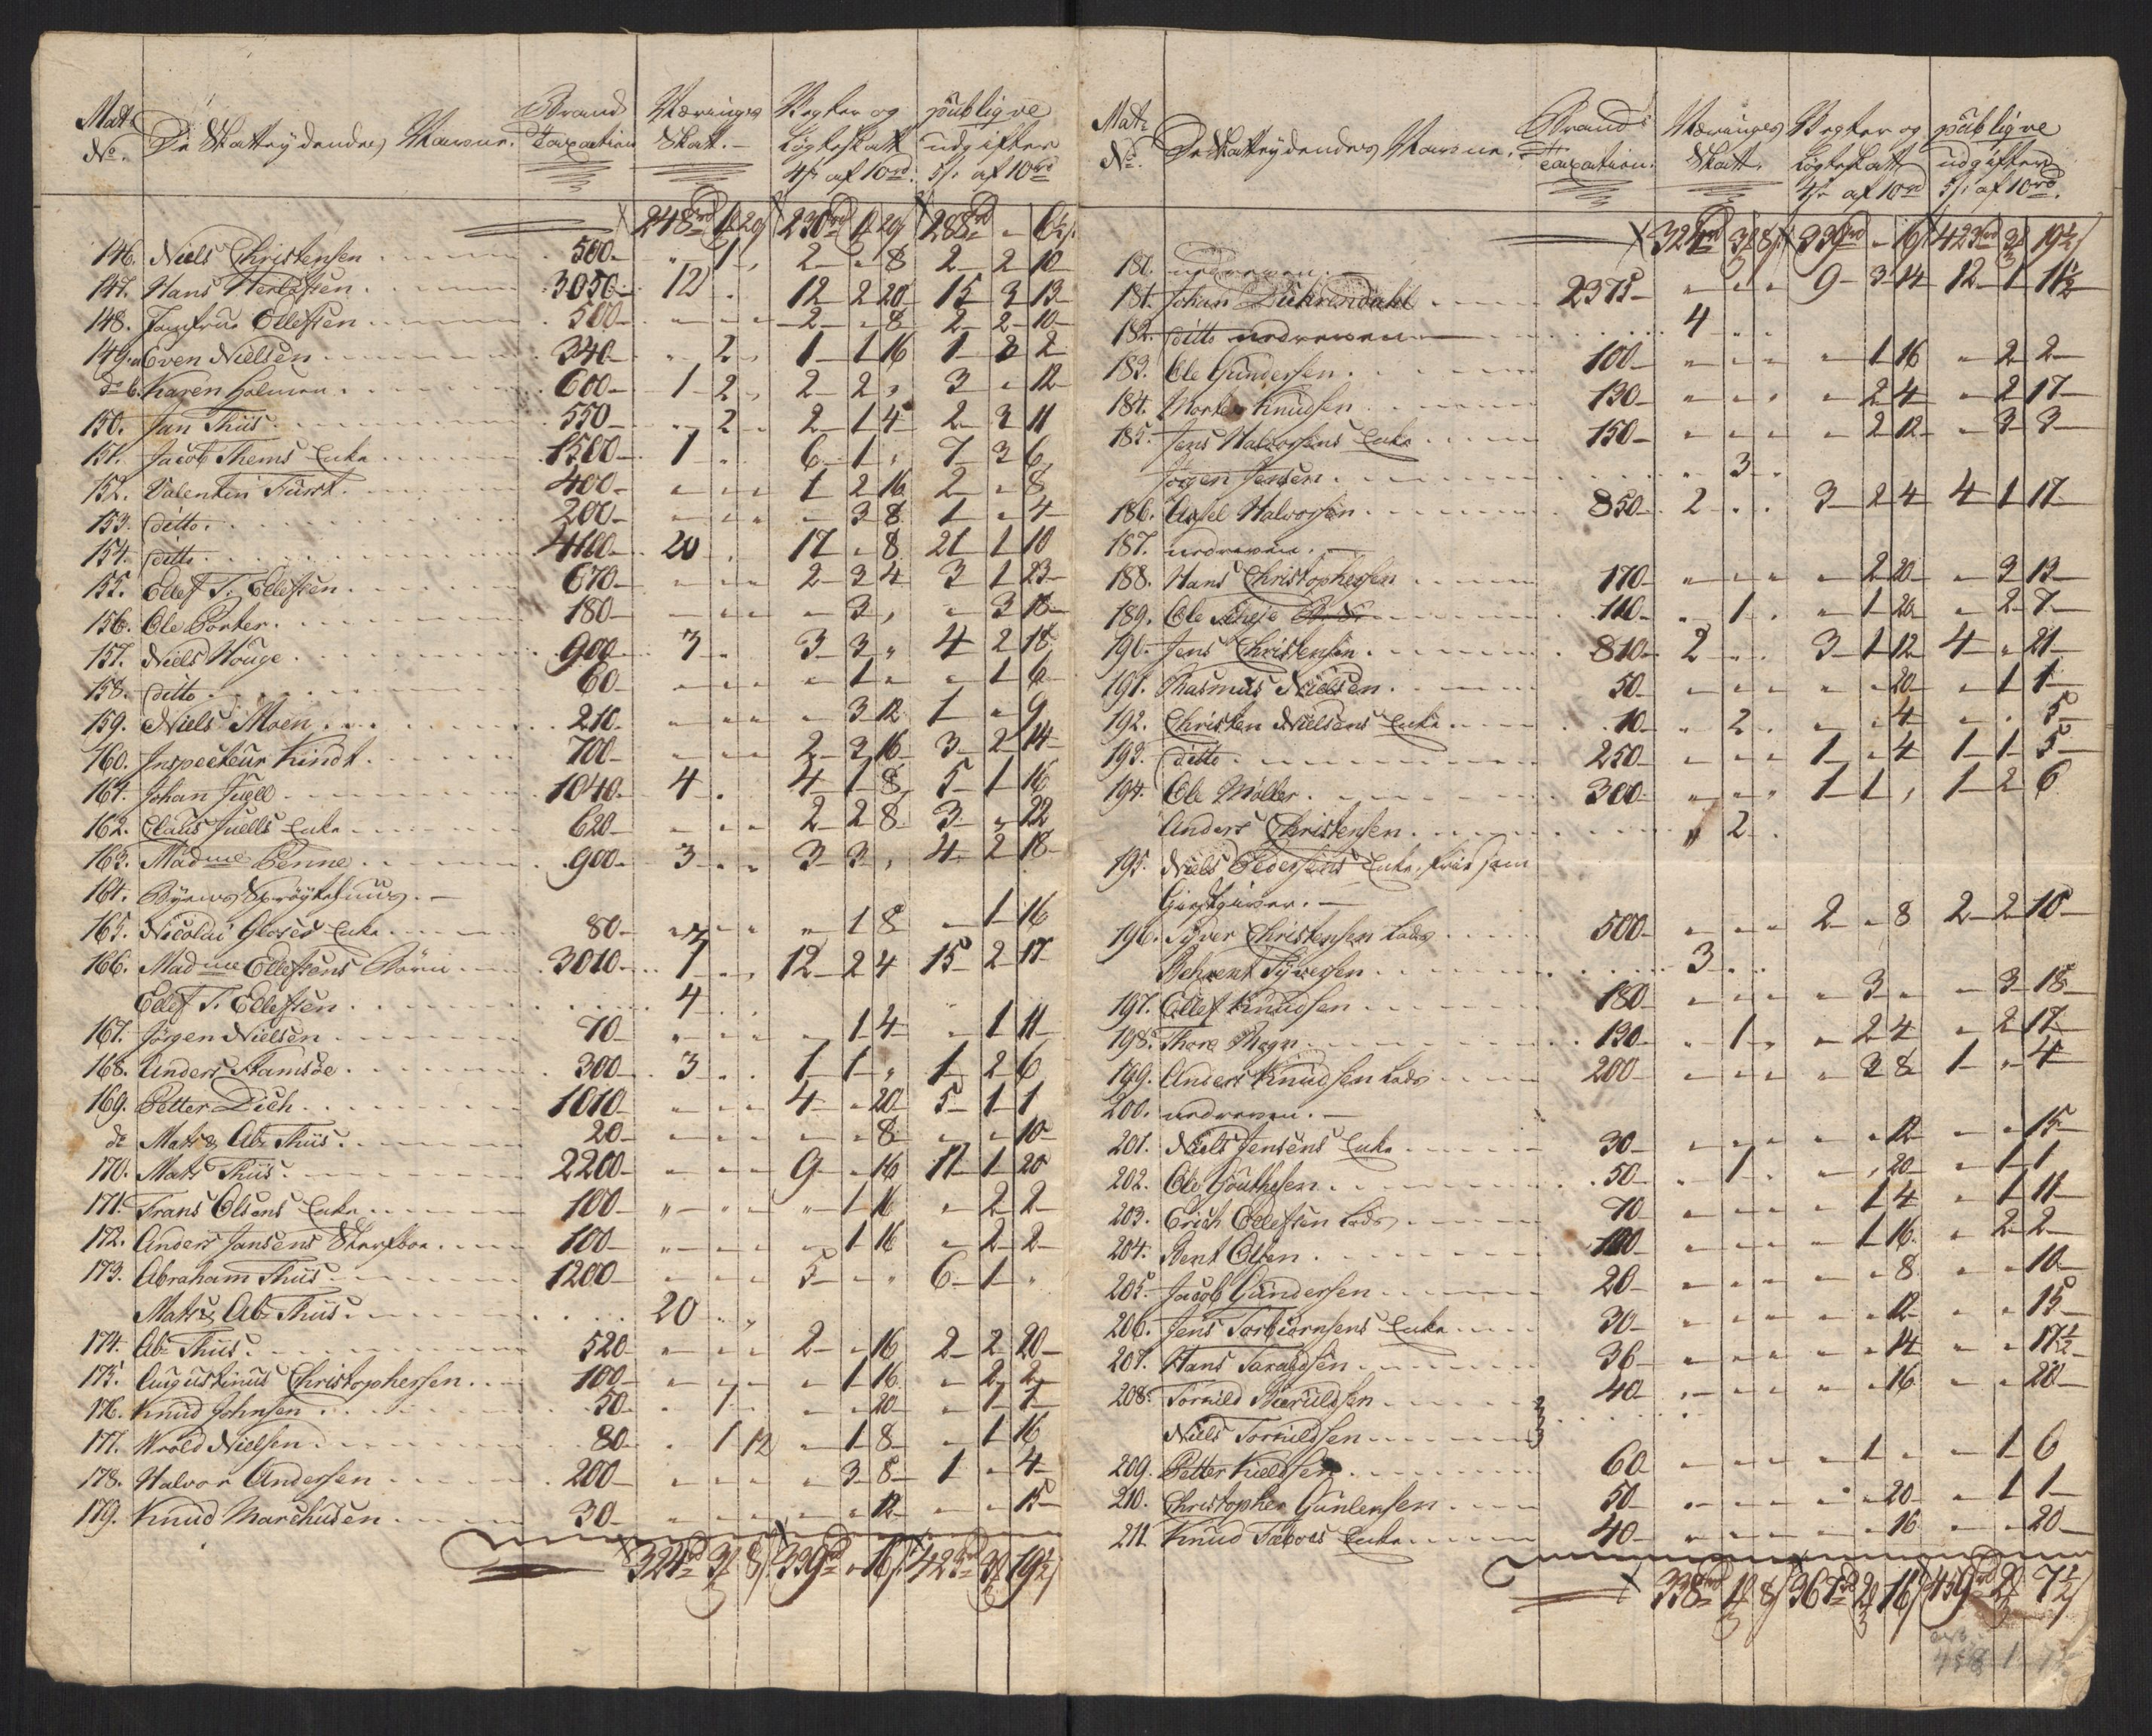 Mat: No. De Skatteydendes Navne. Brand Taxation Nærings Skat. Vegter og Løgteskatt 4 s af 10 rd. publiqve udgifter 5 s af 10 rd
248 rd 1 20 230 rd 1 20 288 rd - 6½
146. Niels Christensen 500 " 1 " 2 " 8 2 2 10
147. Hans Herlofsen 3050 12 " 12 2 20 15 3 13
148. Jomfrue Ellefsen 500 " " " 2 " 8 2 2 10
149.a Even Nielsen 340 " 2 " 1 1 16 1 3 2
do b. Karen Holmen 600 1 2 " 2 2 " 3 " 12
150. Jan Thiis 550 " 2 " 2 1 4 2 3 11
151. Jacob Thems Enke 1500 1 " 6 1 " 7 3 6
152. Valentin Fürst 400 " " " 1 2 16 2 " 8
153. ditto 200 " " " " 3 8 1 " 4
154. ditto 4100 20 " 17 " 8 21 1 10
155. Ellef T. Ellefsen 670 " " " 2 3 4 3 1 23
156. Ole Porter 180 " " " " 3 " " 3 18
157. Niels Houge 900 3 " 3 3 " 4 2 18
158. ditto 60 " " " " 1 " " 1 6
159. Niels Moen 210 " " " " 3 12 1 " 9
160. Inspecteur Kindt 700 " " " 2 3 16 3 2 14
161. Johan Juell 1040 4 " 4 1 8 5 1 16
162. Claus Juells Enke 620 " " " 2 2 8 3 " 22
163. Madme Penne 900 3 " " 3 3 " 4 2 18
164. Byens Sprøytehuus.
165. Nicolai Gloses Enke 80 " " " " 1 8 " 1 16
166. Madme Ellefsens Børn 3010 7 " " 12 2 4 15 2 17
Ellef T. Ellefsen 4
167. Jørgen Nielsen 70 " " " " 1 4 " 1 11
168. Anders Famsøe 300 3 " " 1 1 " 1 2 6
169. Petter Dich 1010 " " " 4 " 20 5 1 1
do Mats & Ab: Thiis 20 " " " " " 8 " " 10
170. Mats Thiis 2200 " " " 9 " 16 11 1 20
171. Frans Olsens Enke 100 " " " " 1 16 " 2 2
172. Anders Jansens Sterfboe 100 " " " " 1 16 " 2 2
173. Abraham Thiis 1200 " " " 5 " " 6 1 "
Mats & Ab: Thiis 20 " "
174. Ab: Thiis 520 " " " 2 " 16 2 2 20
175. Augustinus Christophersen 100 " " " " 1 16 " 2 2
176. Knud Johnsen 50 " 1 " " " 20 " 1 1
177. Wrold Nielsen 80 " 1 12 " 1 8 " 1 16
178. Halvor Andersen 200 " " " " 3 8 1 " 4
179. Knud Marchusen 30 " " " " " 12 " " 15
324 rd 3 8 339 rd " 16 423 rd 3 19½
Mat: No. De Skatteydendes Navne. Brand Taxation. Nærings Skatt. Vegter og Løgteskatt 4 s af 10 rd publiqve udgifter 5 s af 10 rd.
324 rd 3 8 339 rd - 16 423 rd 3 19½
180. nedreven.
181. Johan Dührendahl 2375 " " " 9 3 14 12 1 11½
182. ditto nedreven 4 " "
183. Ole Gundersen 100 " " " " 1 16 " 2 2
184. Morten Knudsen 130 " " " " 2 4 " 2 17
185. Jens Halvorsens Enke 150 " " " " 2 12 " 3 3
Jørgen Jensen " 3 "
186. Axsel Halvorsen 850 2 " " 3 2 4 4 1 17
187. nedreven.
188. Hans Christophersen 170 " " " " 2 20 " 3 13
189. Ole 110 " 1 " " 1 20 " 2 7
190. Jens Christensen 810 2 " " 3 1 12 4 " 21
191. Rasmus Nielsen 50 " " " " " 20 " 1 1
192. Christen Nielsens Enke 10 " 2 " " " 4 " " 5
193. ditto 250 " " " 1 " 4 1 1 5
194. Ole Møller 300 " " " 1 1 " 1 2 6
Anders Christensen " 2 "
195. Niels Pedersens Enke, frie som
Giestgiver.
196. Syver Christensen Lods 500 " " " 2 " 8 2 2 10
Behrent Syversen 3 " "
197. Ellef Knudsen 180 " " " " 3 " " 3 18
198. Thore Magn 130 " 1 " " 2 4 " 2 17
199. Anders Knudsen Lods 200 " " " " 3 8 1 " 4
200. nedreven.
201. Niels Jensens Enke 30 " " " " " 12 " " 15
202. Ole Gouthesen 50 " 1 " " " 20 " 1 1
203. Erich Ellefsen Lods 70 " " " " 1 4 " 1 11
204. Bent Olsen 100 " " " " 1 16 " 2 2
205. Jacob Gundersen 20 " " " " " 8 " " 10
206. Jens Torbiørnsens Enke 30 " " " " " 12 " " 15
207. Hans Taraldsen 36 " " " " " 14 " " 17½
208. Torkild Bæruldsen 40 " " " " " 16 " " 20
Niels Torkildsen
209. Petter Kieldsen 60 " " " " 1 " " 1 6
210. Christopher Gunlersen 50 " " " " " 20 " 1 1
211. Knud Tæbors Enke 40 " " " " " 16 " " 20
338 rd 1 8 367 rd 2 16 459 rd 2 7½
458 1 7½